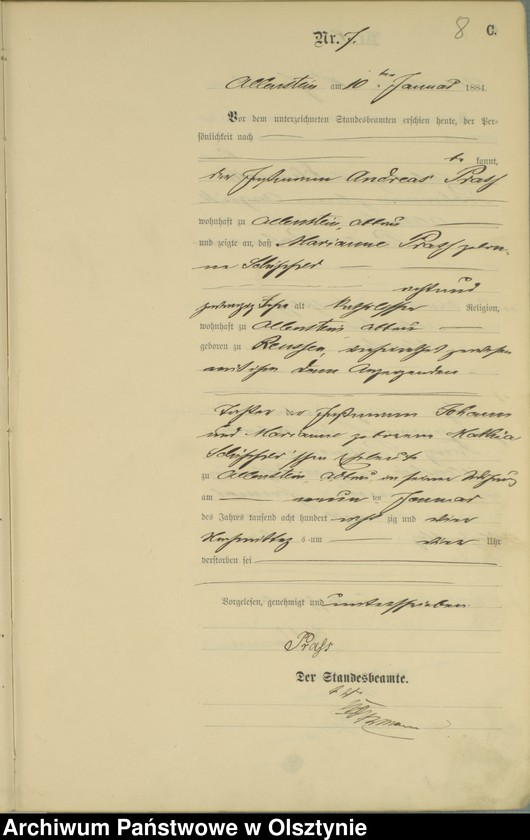 8 C.
Nr. 7.
Allenstein am 10ten Januar 1884.
Vor dem unterzeichneten Standesbeamten erschien heute, der Per-
sönlichkeit nach
be kannt,
der Andreas
wohnhaft zu Allenstein, Abbau
und zeigte an, daß Marianne gebor-
ne
acht und
zwanzig Jahre alt katholischer Religion,
wohnhaft zu Allenstein Abbau
geboren zu Reussen, verheirathet gewesen
mit ihm dem Anzeigenden
Tochter der Johann
und Marianne geborene
Eheleute
zu Allenstein Abbau in seiner Wohnung
am neun ten Januar
des Jahres tausend acht hundert acht zig und vier
Nachmittag s um vier Uhr
verstorben sei
Vorgelesen, genehmigt und unterschrieben
Der Standesbeamte.
Archiwum Państwowe w Olsztynie